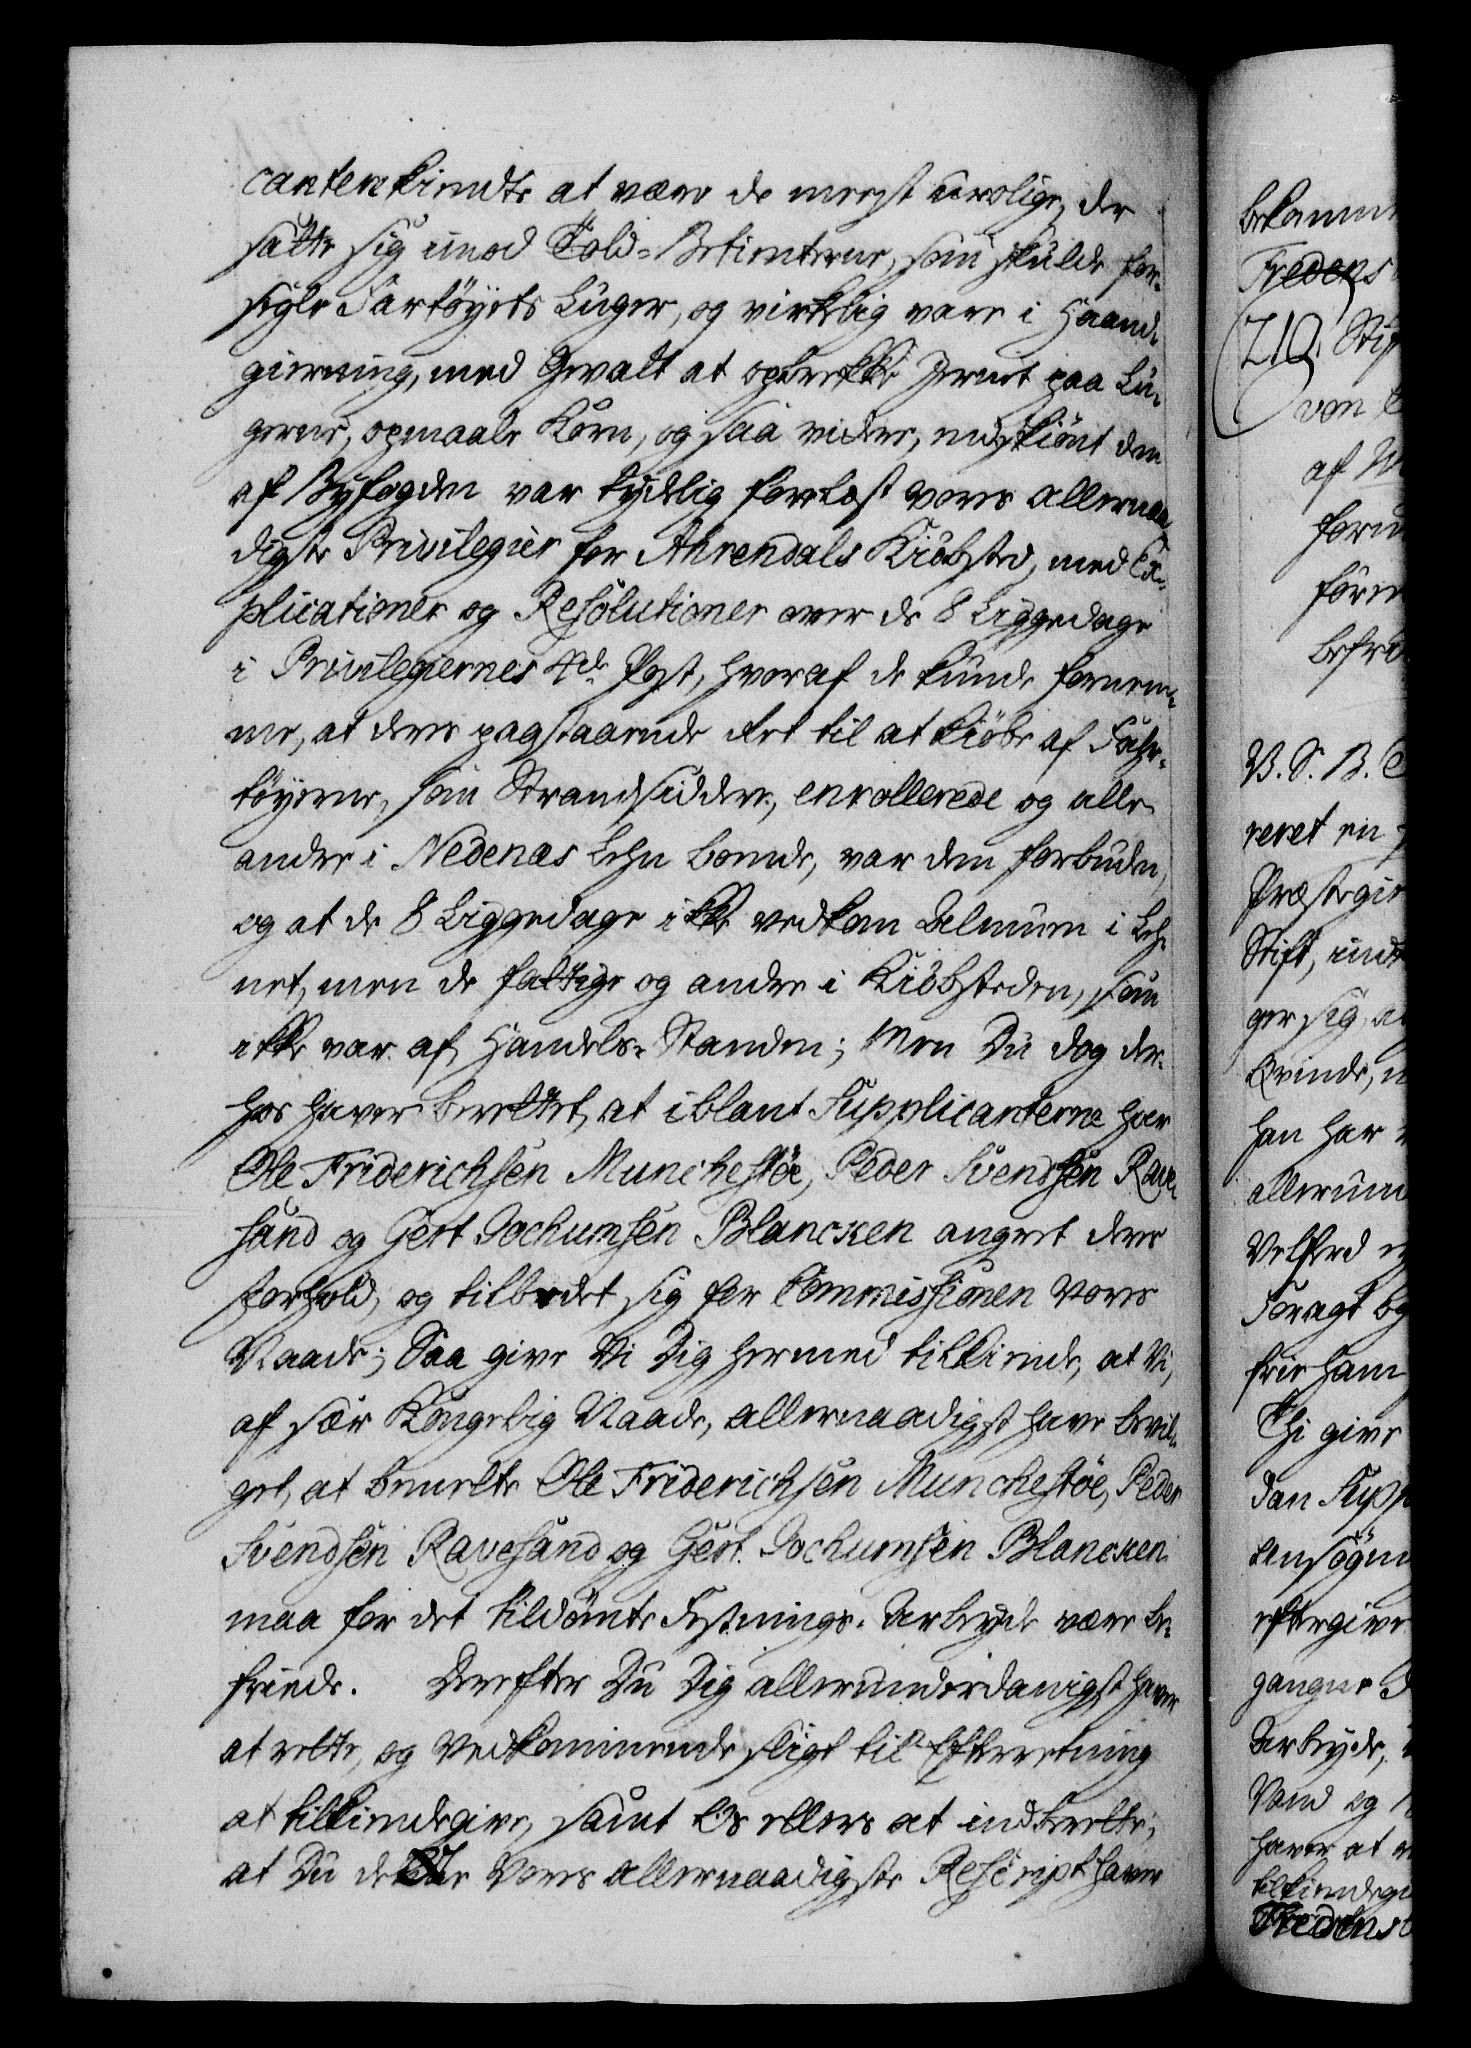 canten kiendte at være de meest urolige, der
satte sig imod Told-Betienterne, som skulde for-
segle Fartöyets Luger, og virkelig vare i Haand-
gierning, med Gevalt at opbrække Jernet paa Lu-
gerne, opmaale Korn, og saa videre, endskiönt dem
af Byfogden var tydelig forelæst vores allernaa-
digste Privilegier for Ahrendals Kiöbsted, med Ex-
plicationer og Resolutioner over de 8 Liggedage
i Privilegiernes 4de Post, hvoraf de kunde fornem-
me, at deres paastaaende Ret til at kiöbe af Fahr-
töyerne, som Strandsiddere, enrollerede og alle
andre i Nedenæs Lehn boende, var dem forbuden,
og at de 8 Liggedage ikke vedkom Almuen i Leh-
net, men de fattige og andre i Kiöbsteden, som
ikke var af Handels-Standen; Men Du dog der-
hos haver berettet, at iblant Supplicanterne har
Ole Friderichsen Munchestöe, Peder Svendsen Rave-
sand og Gert Jochumsen Blancken angret deres
Forhold, og tilbedet sig for Commissionen Vores
Naade; Saa give Vi Dig hermed tilkiende, at Vi,
af sær Kongelig Naade, allernaadigst have bevil-
get, at bemelte Ole Friderichsen Munchestöe, Peder
Svendsen Ravesand og Gert Jochumsen Blancken
maa for det tildömte Festnings-Arbeyde være be-
friede. Derefter Du Dig allerunderdanigst haver
at rette, og Vedkommende sligt til Efterretning
at tilkiendegive, samt Os ellers at indberette,
at Du dette Vores allernaadigste Rescript haver
bekomme
Fredens
210. Stif
von
af
forun
foren
befri
V. S. B.
reret en
Præstegie
Stift, ind
ger sig, a
Qvinde,
han har
allerund
Velferd
Foragt
frie ham
Thi give
dan Supp
ansögni
eftergive
gangne
Arbeyde,
Vand og
haver at
tilkiendegi
Fredensb